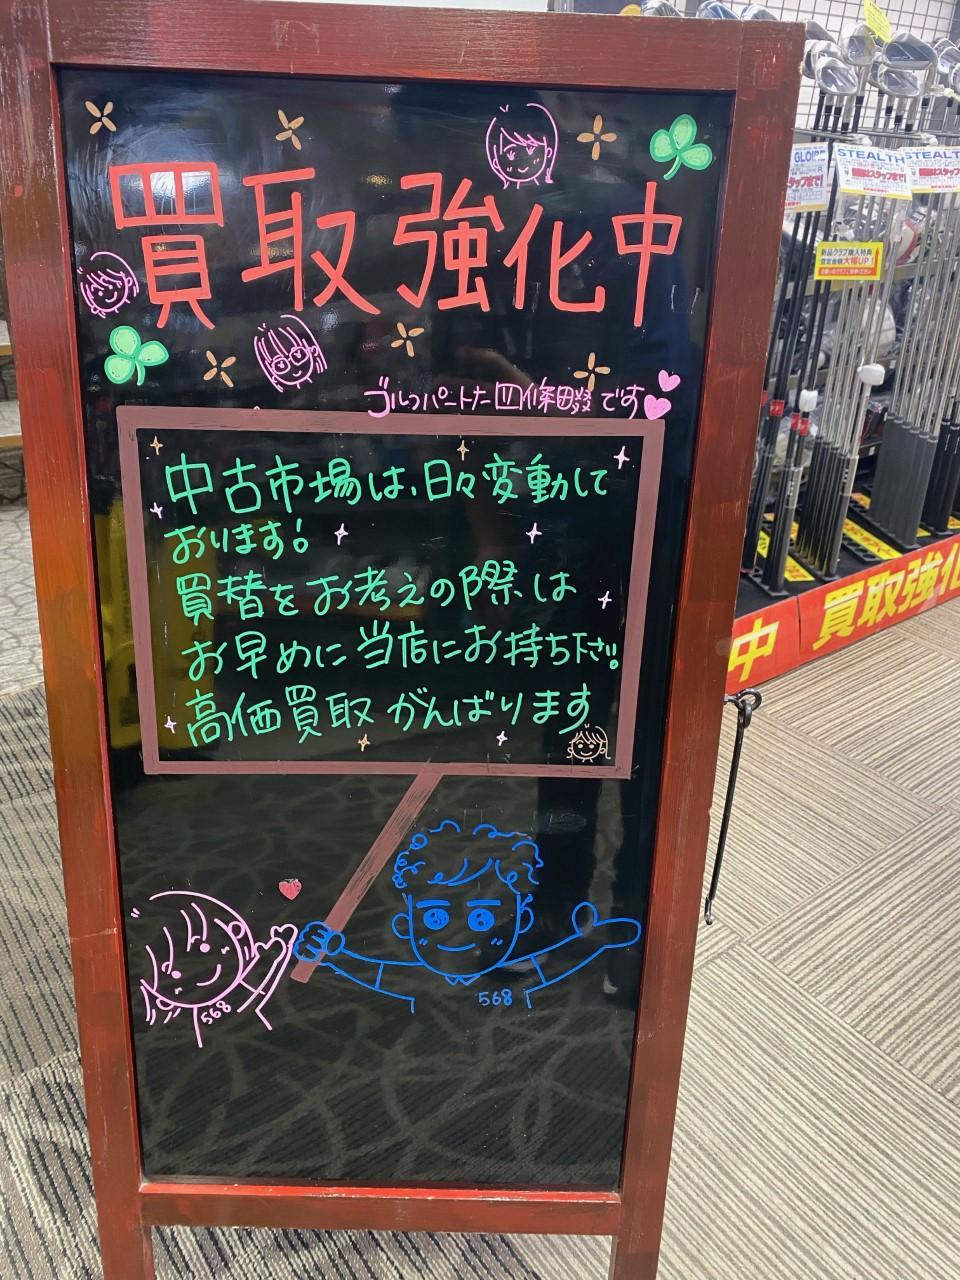 買取強化中
ゴルフパートナー四條畷です
中古市場は、日々変動して
おります!
買替をお考えの際は
お早めに当店にお持ち下さい。
高価買取がんばります
568
568
GLOIRE
STEALTH
STEALTH
新品クラブ購入特典
査定金額大幅UP!
中 買取強化